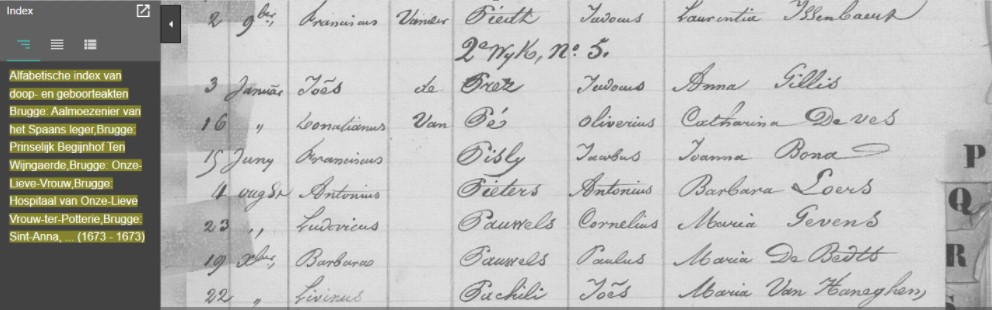 Index
Alfabetische index van
doop- en geboorteakten
Brugge: Aalmoezenier van
het Spaans leger,Brugge:
Prinselijk Begijnhof Ten
Wijngaerde,Brugge: Onze-
Lieve-Vrouw,Brugge:
Hospitaal van Onze-Lieve
Vrouw-ter-Potterie,Brugge:
Sint-Anna, ... (1673 - 1673)
2 9ber, Franciscus Judocus Laurentia Issenbaert
2e Wyk, No. 5.
3 Januar Joēs de Pretz Judocus Anna Gillis
16 " Donatianus Van Pé Oliverius Catharina De ves
15 Juny Franciscus Pisly Jacobus Joanna Bona
4 augst Antonius Pieters Antonius Barbara Loers
23 ,, Ludovicus Pauwels Cornelius Maria Gevens
19 xber, Barbara Pauwels Paulus Maria De Bedts
22 " Livinus Pachili Joēs Maria Van Haneghem,
P
Q
R